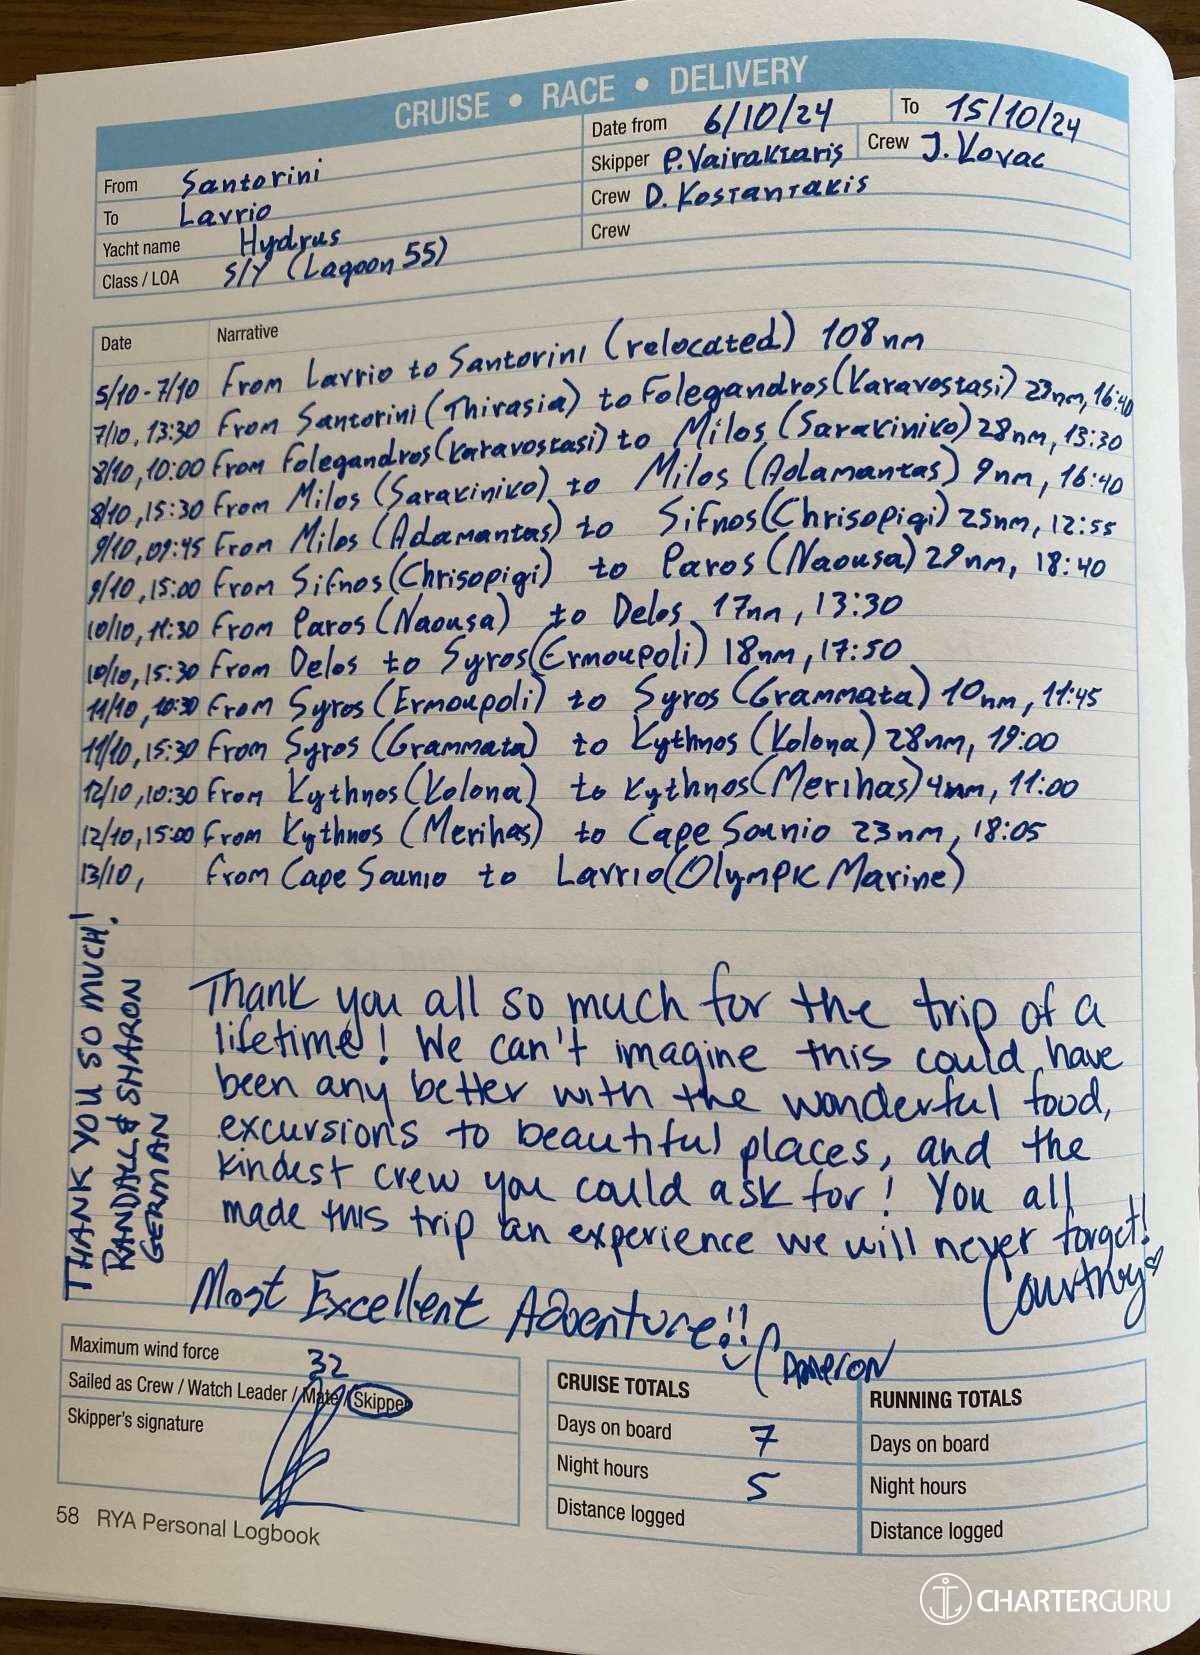 CRUISE • RACE • DELIVERY
Date from 6/10/24 To 15/10/24
From Santorini
Skipper P. Vairaktaris Crew J. Kovac
To Lavrio
Crew D. Kostantakis
Yacht name Hydrus
Crew
Class / LOA S/Y (Lagoon 55)
Date Narrative
5/10 - 7/10 From Lavrio to Santorini (relocated) 108nm
7/10, 13:30 From Santorini (Thirasia) to Folegandros (Karavostasi) 23nm, 16:40
8/10, 10:00 From Folegandros (Karavostasi) to Milos (Sarakiniko) 28nm, 13:30
8/10, 15:30 From Milos (Sarakiniko) to Milos (Adamantas) 9nm, 16:40
9/10, 09:45 From Milos (Adamantas) to Sifnos (Chrisopigi) 25nm, 12:55
9/10, 15:00 From Sifnos (Chrisopigi) to Paros (Naousa) 29nm, 18:40
10/10, 11:30 From Paros (Naousa) to Delos 17nm, 13:30
10/10, 15:30 From Delos to Syros (Ermoupoli) 18nm, 17:50
11/10, 10:30 From Syros (Ermoupoli) to Syros (Grammata) 10nm, 11:45
11/10, 15:30 From Syros (Grammata) to Kythnos (Kolona) 28nm, 19:00
12/10, 10:30 From Kythnos (Kolona) to Kythnos (Merihas) 4nm, 11:00
12/10, 15:00 From Kythnos (Merihas) to Cape Sounio 23nm, 18:05
13/10, From Cape Sounio to Lavrio (Olympic Marine)
THANK YOU SO MUCH!
RANDALL & SHARON
GERMAN
Thank you all so much for the trip of a
lifetime! We can't imagine this could have
been any better with the wonderful food,
excursions to beautiful places, and the
kindest crew you could ask for! You all
made this trip an experience we will never forget!
Courtney
Most Excellent Adventure!!
Cameron
Maximum wind force 32
Sailed as Crew / Watch Leader / Mate / Skipper
Skipper's signature
CRUISE TOTALS
Days on board 7
Night hours 5
Distance logged
RUNNING TOTALS
Days on board
Night hours
Distance logged
58 RYA Personal Logbook
CHARTERGURU